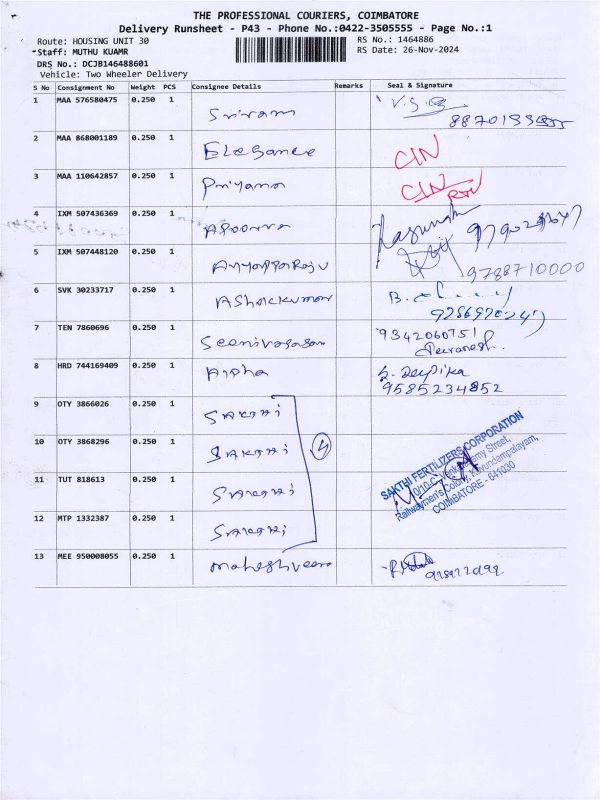 THE PROFESSIONAL COURIERS, COIMBATORE
Delivery Runsheet - P43 - Phone No.:0422-3505555 - Page No.:1
Route: HOUSING UNIT 30 RS No.: 1464886
Staff: MUTHU KUAMR RS Date: 26-Nov-2024
DRS No.: DCJB146488601
Vehicle: Two Wheeler Delivery
S No Consignment No Weight PCS Consignee Details Remarks Seal & Signature
1 MAA 576580475 0.250 1 Sriram V.S.
2 MAA 868001189 0.250 1 Elegance CIN
3 MAA 110642857 0.250 1 Priyana CIN
4 IXM 507436369 0.250 1 Apoorva
5 IXM 507448120 0.250 1 AyyappaRaju 9788710000
6 SVK 30233717 0.250 1 AShokkumar
7 TEN 7860696 0.250 1 Seenivasasan 9342060751
8 HRD 744169409 0.250 1 Alpha S. Deepika
9585234852
9 OTY 3866026 0.250 1 SAKTHI
10 OTY 3868296 0.250 1 SAKTHI 4
11 TUT 818613 0.250 1 SAKTHI
12 MTP 1332387 0.250 1 SAKTHI
SAKTHI FERTILIZERS CORPORATION
Street,
Railwaymen's Colony, Kavundampalayam,
COIMBATORE - 641030
13 MEE 950008055 0.250 1 maheshveera